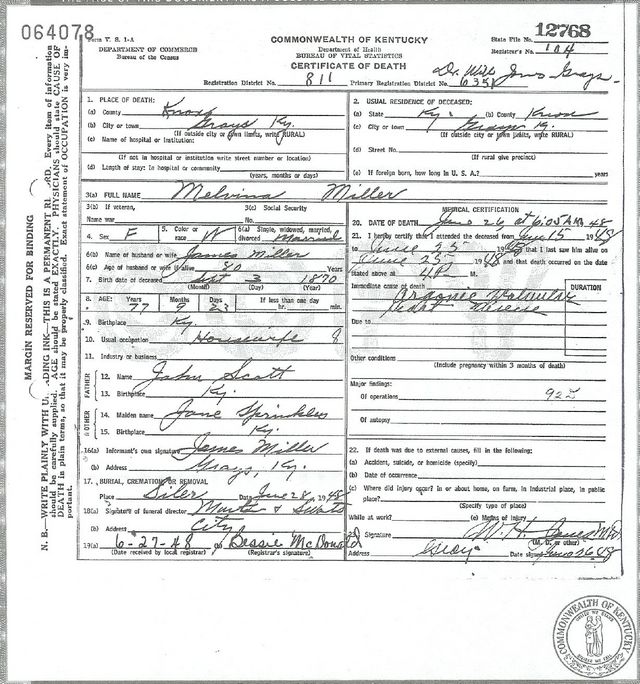 064078
Form V. S. 1-A
DEPARTMENT OF COMMERCE
Bureau of the Census
COMMONWEALTH OF KENTUCKY
Department of Health
BUREAU OF VITAL STATISTICS
CERTIFICATE OF DEATH
State File No. 12768
Registrar's No. 104
Registration District No. 811 Primary Registration District No. 6351
MARGIN RESERVED FOR BINDING
N. B.—WRITE PLAINLY WITH UNFADING INK—THIS IS A PERMANENT RECORD. Every item of information
should be carefully supplied. AGE should be stated EXACTLY. PHYSICIANS should state CAUSE OF
DEATH in plain terms, so that it may be properly classified. Exact statement of OCCUPATION is very im-
portant.
1. PLACE OF DEATH:
(a) County Knox
(b) City or town Grays Ky.
(If outside city or town limits, write RURAL)
(c) Name of hospital or institution:
(If not in hospital or institution write street number or location)
(d) Length of stay: In hospital or community
(years, months or days)
2. USUAL RESIDENCE OF DECEASED:
(a) State Ky. (b) County Knox
(c) City or town Grays Ky.
(If outside city or town limits, write RURAL)
(d) Street No.
(If rural give precinct)
(e) If foreign born, how long in U. S. A.? years
3(a) FULL NAME Melvina Miller
3(b) If veteran,
Name war
3(c) Social Security
No.
4. Sex F
5. Color or
race W
6(a) Single, widowed, married,
divorced Married
6(b) Name of husband or wife James Miller
6(c) Age of husband or wife if alive 80 Years
7. Birth date of deceased Sept 3 1870
(Month) (Day) (Year)
8. AGE: Years Months Days If less than one day
77 9 23 hr. min.
9. Birthplace Ky.
10. Usual occupation Housewife 8
11. Industry or business
FATHER
12. Name John Scott
13. Birthplace Ky.
MOTHER
14. Maiden name Jane Sprinkles
15. Birthplace Ky.
16(a) Informant's own signature James Miller
(b) Address Grays, Ky.
17. BURIAL, CREMATION OR REMOVAL
Place Siler Date June 28, 1948
18(a) Signature of funeral director
(b) Address City
19(a) 6-27-48 Bessie McDonald
(Date received by local registrar) (Registrar's signature)
MEDICAL CERTIFICATION
20. DATE OF DEATH June 26 at 6:05 AM 48
21. I hereby certify that I attended the deceased from June 15 1948
to June 25 1948 that I last saw him alive on
June 25 1948 and that death occurred on the date
stated above at M.
Immediate cause of death Organic Valvular
Heart Disease
DURATION
Due to
Other conditions
(Include pregnancy within 3 months of death)
Major findings:
Of operations 92
Of autopsy
22. If death was due to external causes, fill in the following:
(a) Accident, suicide, or homicide (specify)
(b) Date of occurrence
(c) Where did injury occur? in or about home, on farm, in industrial place, in public
place?
(Specify type of place)
While at work? (e) Means of injury
23. Signature W. H. Jones M.D.
(M. D. or other)
Address Grays Date signed June 26 48
COMMONWEALTH OF KENTUCKY